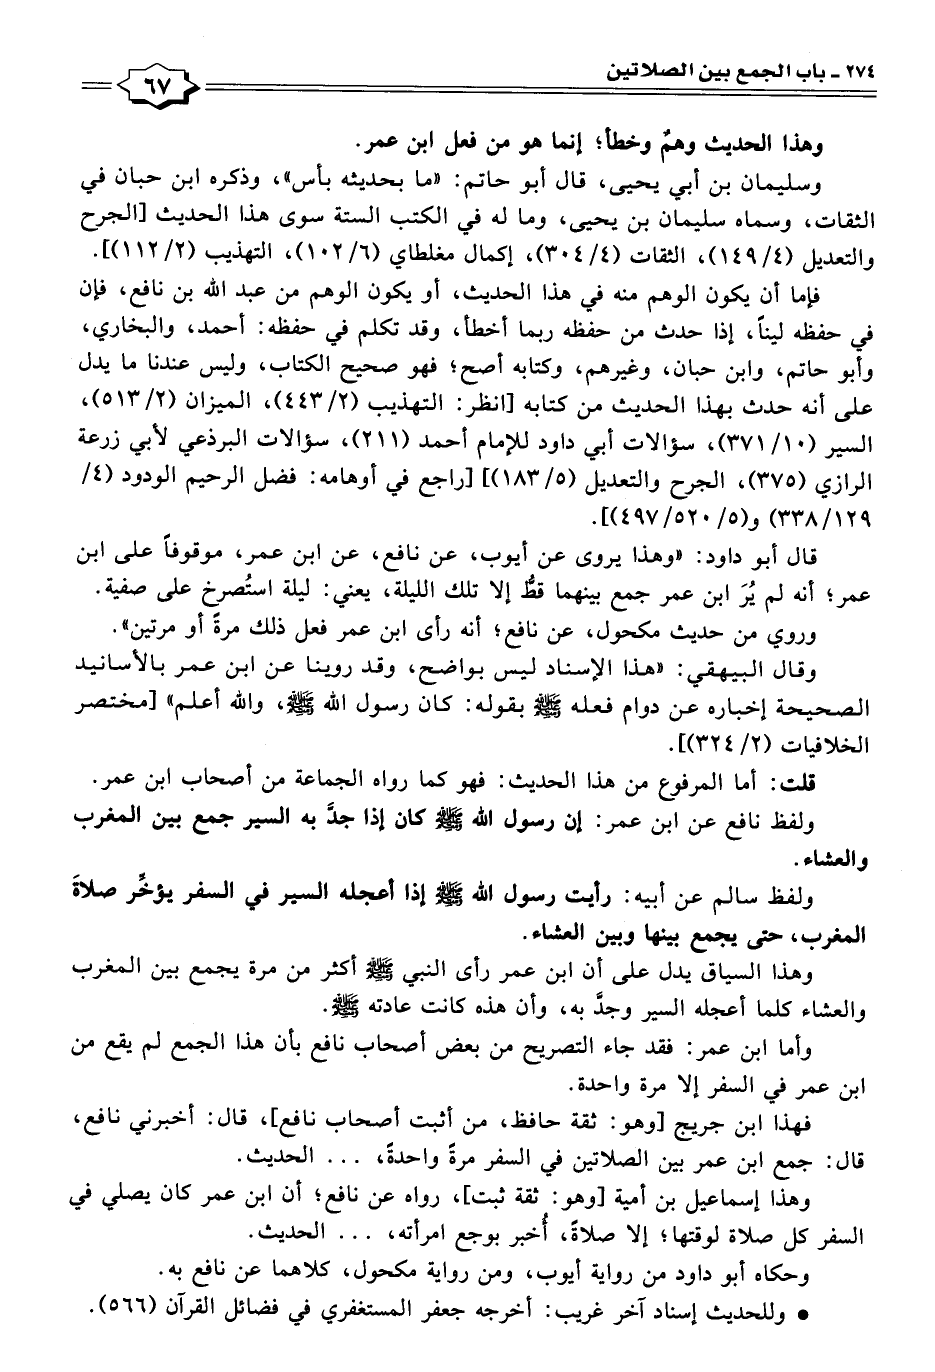 ٢٧٤ - باب الجمع بين الصلاتين
٦٧
وهذا الحديث وهمٌ وخطأ؛ إنما هو من فعل ابن عمر.
وسليمان بن أبي يحيى، قال أبو حاتم: «ما بحديثه بأس»، وذكره ابن حبان في
الثقات، وسماه سليمان بن يحيى، وما له في الكتب الستة سوى هذا الحديث [الجرح
والتعديل (٤/ ١٤٩)، الثقات (٤/ ٣٠٤)، إكمال مغلطاي (٦/ ١٠٢)، التهذيب (٢/ ١١٢)].
فإما أن يكون الوهم منه في هذا الحديث، أو يكون الوهم من عبد الله بن نافع، فإن
في حفظه ليناً، إذا حدث من حفظه ربما أخطأ، وقد تكلم في حفظه: أحمد، والبخاري،
وأبو حاتم، وابن حبان، وغيرهم، وكتابه أصح؛ فهو صحيح الكتاب، وليس عندنا ما يدل
على أنه حدث بهذا الحديث من كتابه [انظر: التهذيب (٢/ ٤٤٣)، الميزان (٢/ ٥١٣)،
السير (١٠/ ٣٧١)، سؤالات أبي داود للإمام أحمد (٢١١)، سؤالات البرذعي لأبي زرعة
الرازي (٣٧٥)، الجرح والتعديل (٥/ ١٨٣)] [راجع في أوهامه: فضل الرحيم الودود (٤/
١٢٩/ ٣٣٨) و(٥/ ٥٢٠/ ٤٩٧)].
قال أبو داود: «وهذا يروى عن أيوب، عن نافع، عن ابن عمر، موقوفاً على ابن
عمر؛ أنه لم يُرَ ابن عمر جمع بينهما قطُّ إلا تلك الليلة، يعني: ليلة استُصرخ على صفية.
وروي من حديث مكحول، عن نافع؛ أنه رأى ابن عمر فعل ذلك مرةً أو مرتين».
وقال البيهقي: «هذا الإسناد ليس بواضح، وقد روينا عن ابن عمر بالأسانيد
الصحيحة إخباره عن دوام فعله ﷺ بقوله: كان رسول الله ﷺ، والله أعلم» [مختصر
الخلافيات (٢/ ٣٢٤)].
قلت: أما المرفوع من هذا الحديث: فهو كما رواه الجماعة من أصحاب ابن عمر.
ولفظ نافع عن ابن عمر: إن رسول الله ﷺ كان إذا جدَّ به السير جمع بين المغرب
والعشاء.
ولفظ سالم عن أبيه: رأيت رسول الله ﷺ إذا أعجله السير في السفر يؤخِّر صلاةَ
المغرب، حتى يجمع بينها وبين العشاء.
وهذا السياق يدل على أن ابن عمر رأى النبي ﷺ أكثر من مرة يجمع بين المغرب
والعشاء كلما أعجله السير وجدَّ به، وأن هذه كانت عادته ﷺ.
وأما ابن عمر: فقد جاء التصريح من بعض أصحاب نافع بأن هذا الجمع لم يقع من
ابن عمر في السفر إلا مرة واحدة.
فهذا ابن جريج [وهو: ثقة حافظ، من أثبت أصحاب نافع]، قال: أخبرني نافع،
قال: جمع ابن عمر بين الصلاتين في السفر مرةً واحدةً، ... الحديث.
وهذا إسماعيل بن أمية [وهو: ثقة ثبت]، رواه عن نافع؛ أن ابن عمر كان يصلي في
السفر كل صلاة لوقتها؛ إلا صلاةً، أُخبر بوجع امرأته، ... الحديث.
وحكاه أبو داود من رواية أيوب، ومن رواية مكحول، كلاهما عن نافع به.
• وللحديث إسناد آخر غريب: أخرجه جعفر المستغفري في فضائل القرآن (٥٦٦).